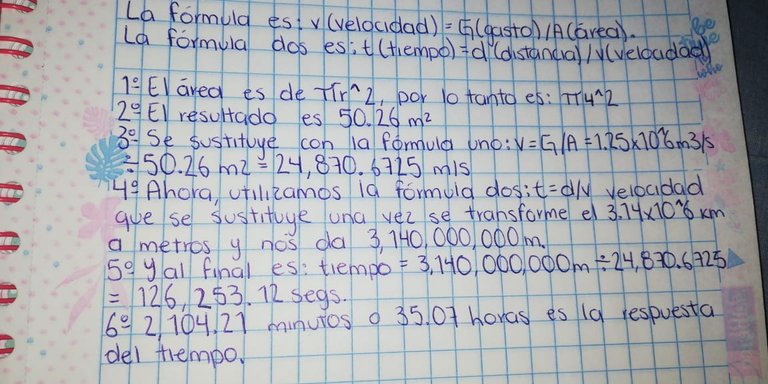 La fórmula es: v(velocidad) = G(gasto)/A(área).
La fórmula dos es: t(tiempo)=d(distancia)/v(velocidad)
1º El área es de πr^2, por lo tanto es: π4^2
2º El resultado es 50.26 m²
3º Se sustituye con la fórmula uno: V=G/A = 1.25x10^6m3/s
÷50.26 m2 = 24,870.6725 m/s
4º Ahora, utilizamos la fórmula dos: t=d/v velocidad
que se sustituye una vez se transforme el 3.14x10^6 km
a metros y nos da 3,140,000,000m.
5º Y al final es: tiempo = 3,140,000,000m÷24,870.6725
= 126,253.12 segs.
6º 2,104.21 minutos o 35.07 horas es la respuesta
del tiempo.